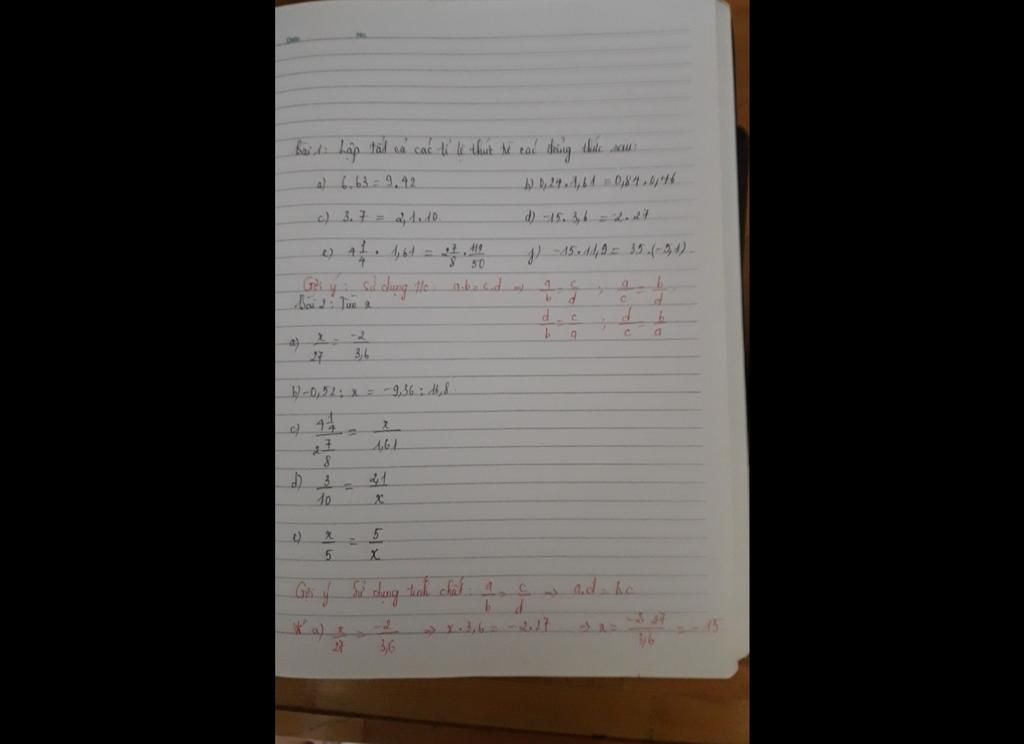 Date No.
Bài 1: Lập tất cả các tỉ lệ thức từ các đẳng thức sau:
a) 6.63 = 9.42 b) 0,24.1,61 = 0,84.0,46
c) 3.7 = 2,1.10 d) -15.3,6 = -2.27
e) 4 1/4 . 1,61 = 2 7/8 . 119/50 f) -15.11,9 = 35.(-5,1)
Gợi ý: Sử dụng t/c: a.b = c.d ⇒ a/b = c/d ; a/c = b/d
Bài 2: Tìm x d/b = c/a ; d/c = b/a
a) x/27 = -2/3,6
b) -0,52 : x = -9,36 : 16,8
c) 4 1/4 / 2 7/8 = x/1,61
d) 3/10 = 2,1/x
e) x/5 = 5/x
Gợi ý Sử dụng tính chất: a/b = c/d ⇒ a.d = b.c
a) x/27 = -2/3,6 ⇒ x.3,6 = -2.27 ⇒ x = -2.27/3,6 = -15